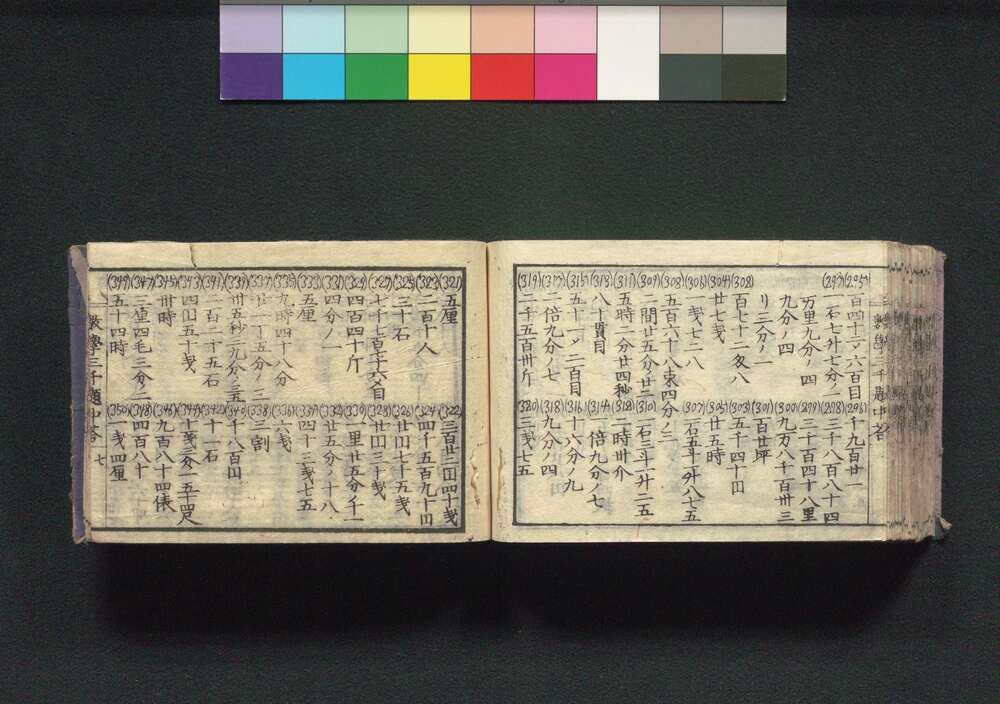 數學三千題中答
(295)百四十三〆六百目 (296)千九百廿一
(297)一石七升七分ノ二 (298)三千八百八十四
万里九分ノ四 (299)三千百四十八里
九分ノ四 (300)九万八千百卅三
リ三分ノ一 (301)百廿坪
(302)百七十二匁八 (303)五千四十円
(304)廿七戔 (305)廿五時
(306)一戔七二八 (307)二石五斗一升八七五
(308)五百六十八束四分ノ三
(309)二間廿五分ノ廿二 (310)一石三斗一升二五
(311)五時二分廿四秒 (312)二時卅分
(313)八十貫目 (314)一倍九分ノ七
(315)五十一〆二百目 (316)十六分ノ九
(317)二倍九分ノ七 (318)九分ノ四
(319)二千五百卅斤 (320)三戔七五
(321)五厘 (322)三百廿二円四十戔
(323)二百十人 (324)四千五百九十円
(325)三十石 (326)廿円七十五戔
(327)七千七百三十六〆目 (328)廿円三十戔
(329)四百四十斤 (330)一里廿五分ノ十一
(331)四分ノ一 (332)廿五分ノ十八
(333)五厘 (334)四十三戔七五
(335)九時四十八分 (336)六戔
(337)廿一丁五分ノ三 (338)三割
(339)卅五秒二九分ノ三五 (340)千八百円
(341)二百二十五石 (342)十一石
(343)四円五十戔 (344)十戔三分ノ二 五十四尺
(345)卅時 (346)九百八十四俵
(347)三厘四毛三分ノ二 (348)四百八十
(349)五十四時 (350)一戔四厘
數學三千題中答 七